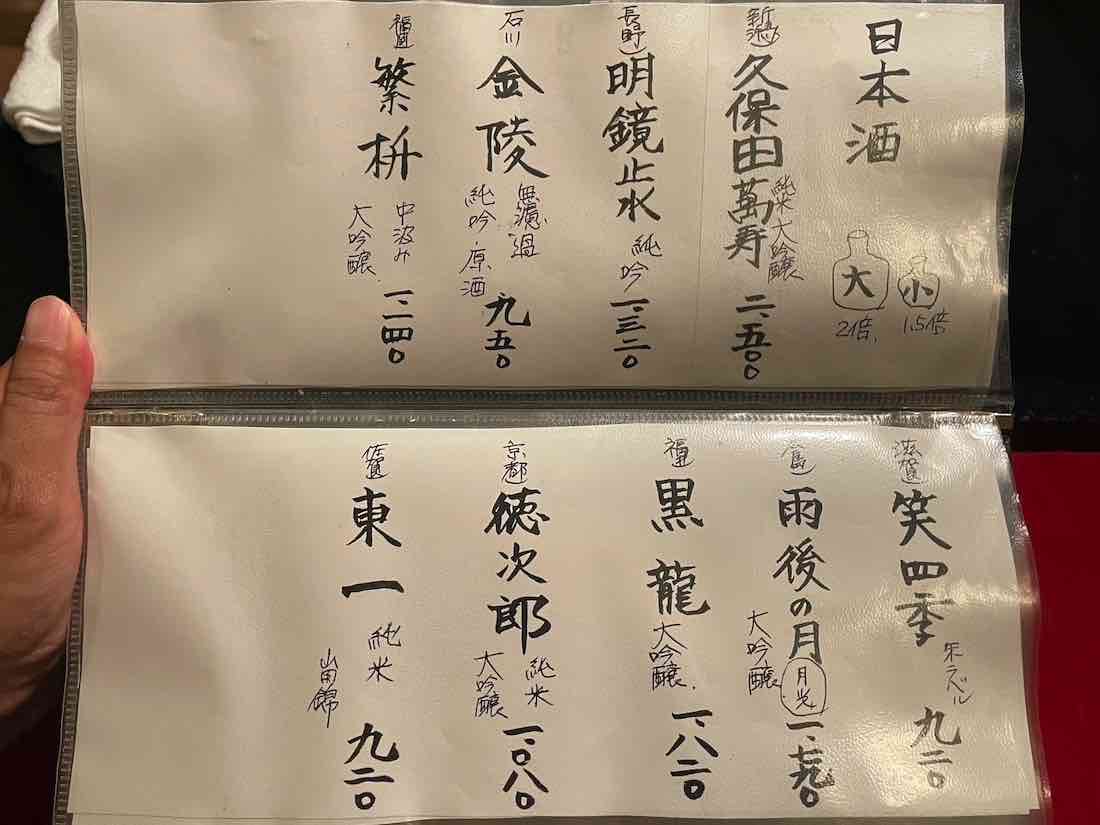 日本酒
大
2倍.
小
1.5倍.
新潟
久保田萬寿
純米大吟醸
二、五〇〇
長野
明鏡止水
純吟
一、三二〇
石川
金陵
無濾過
純吟・原酒
九五〇
福岡
繁枡
中汲み
大吟醸
一、二四〇
滋賀
笑四季
朱ラベル
九二〇
雨後の月
月光
大吟醸
福井
黒龍
大吟醸.
一、八二〇
京都
徳次郎
純米
大吟醸
一、〇八〇
佐賀
東一
純米
山田錦
九二〇